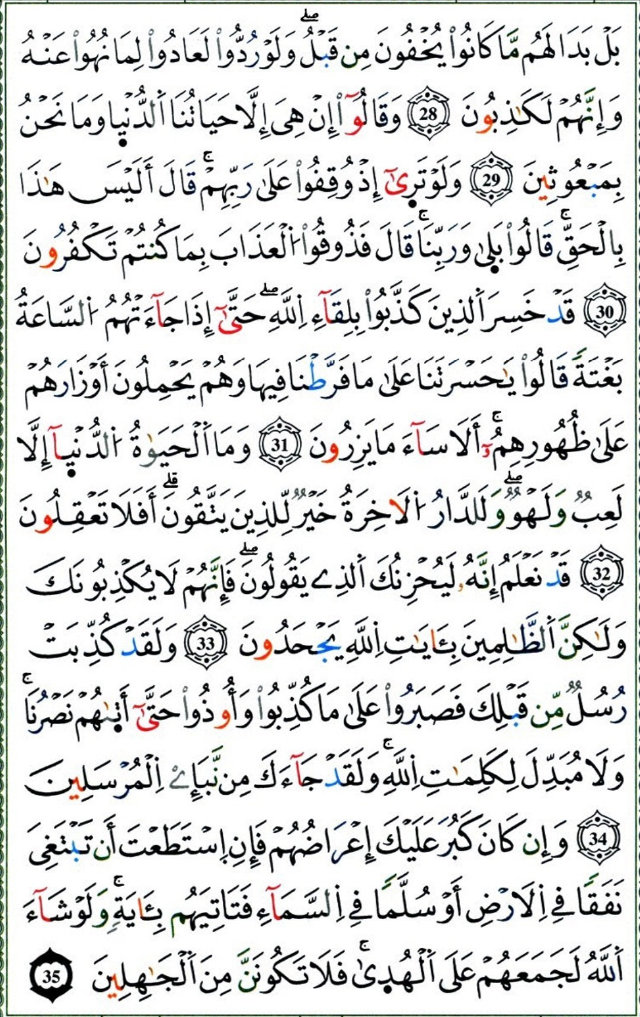 بَلْ بَدَا لَهُم مَّا كَانُوا۟ يُخْفُونَ مِن قَبْلُۖ وَلَوْ رُدُّوا۟ لَعَادُوا۟ لِمَا نُهُوا۟ عَنْهُ
وَإِنَّهُمْ لَكَٰذِبُونَ 28 وَقَالُوٓا۟ إِنْ هِىَ إِلَّا حَيَاتُنَا اَ۬لدُّنْي۪ا وَمَا نَحْنُ
بِمَبْعُوثِينَ 29 وَلَوْ تَر۪ىٰٓ إِذْ وُقِفُوا۟ عَلَىٰ رَبِّهِمْۚ قَالَ أَلَيْسَ هَٰذَا
بِالْحَقِّۚ قَالُوا۟ بَل۪ىٰ وَرَبِّنَاۚ قَالَ فَذُوقُوا۟ اُ۬لْعَذَابَ بِمَا كُنتُمْ تَكْفُرُونَ
30 قَدْ خَسِرَ اَ۬لذِينَ كَذَّبُوا۟ بِلِقَآءِ اِ۬للَّهِۖ حَتَّىٰٓ إِذَا جَآءَتْهُمُ اُ۬لسَّاعَةُ
بَغْتَةً قَالُوا۟ يَٰحَسْرَتَنَا عَلَىٰ مَا فَرَّطْنَا فِيهَا وَهُمْ يَحْمِلُونَ أَوْزَارَهُمْ
عَلَىٰ ظُهُورِهِمُۥٓۚ أَلَا سَآءَ مَا يَزِرُونَ 31 وَمَا اَ۬لْحَيَوٰةُ اُ۬لدُّنْي۪آ إِلَّا
لَعِبٌ وَلَهْوٌۖ وَلَلدَّارُ اُ۬لَاخِرَةُ خَيْرٌ لِّلذِينَ يَتَّقُونَۗ أَفَلَا تَعْقِلُونَ
32 قَدْ نَعْلَمُ إِنَّهُۥ لَيُحْزِنُكَ اَ۬لذِے يَقُولُونَۖ فَإِنَّهُمْ لَا يُكْذِبُونَكَ
وَلَٰكِنَّ اَ۬لظَّٰلِمِينَ بِـَٔايَٰتِ اِ۬للَّهِ يَجْحَدُونَ 33 وَلَقَدْ كُذِّبَتْ
رُسُلٌ مِّن قَبْلِكَ فَصَبَرُوا۟ عَلَىٰ مَا كُذِّبُوا۟ وَأُوذُوا۟ حَتَّىٰٓ أَت۪ىٰهُمْ نَصْرُنَاۚ
وَلَا مُبَدِّلَ لِكَلِمَٰتِ اِ۬للَّهِۚ وَلَقَدْ جَآءَكَ مِن نَّبَإِے۟ اِ۬لْمُرْسَلِينَ
34 وَإِن كَانَ كَبُرَ عَلَيْكَ إِعْرَاضُهُمْ فَإِنِ اِ۪سْتَطَعْتَ أَن تَبْتَغِىَ
نَفَقًا فِے اِ۬لَارْضِ أَوْ سُلَّمًا فِے اِ۬لسَّمَآءِ فَتَاتِيَهُم بِـَٔايَةٍۚ وَلَوْ شَآءَ
اَ۬للَّهُ لَجَمَعَهُمْ عَلَى اَ۬لْهُد۪ىٰۚ فَلَا تَكُونَنَّ مِنَ اَ۬لْجَٰهِلِينَ 35